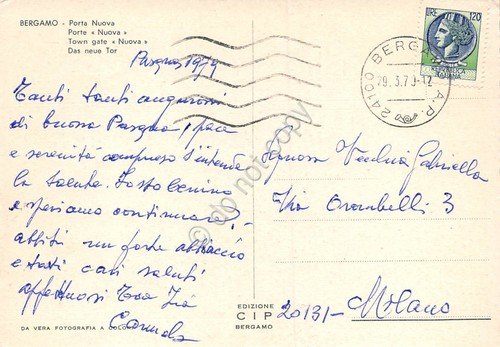 BERGAMO - Porta Nuova
Porte « Nuova »
Town gate « Nuova »
Das neue Tor
Pasqua 1979
Tanti tanti auguroni
di buona Pasqua, pace
e serenità compreso s'intende
la salute. Io sto benino
e speriamo continuare,
abbiti un forte abbraccio
e tanti cari saluti
affettuosi tua Zia
LIRE 120
24100 BERGAMO A.P.
29.3.79-12
Vecchia Gabriella
Via Crambelli 3
20131- Milano
EDIZIONE
C I P
BERGAMO
DA VERA FOTOGRAFIA A COLORI
do not copy